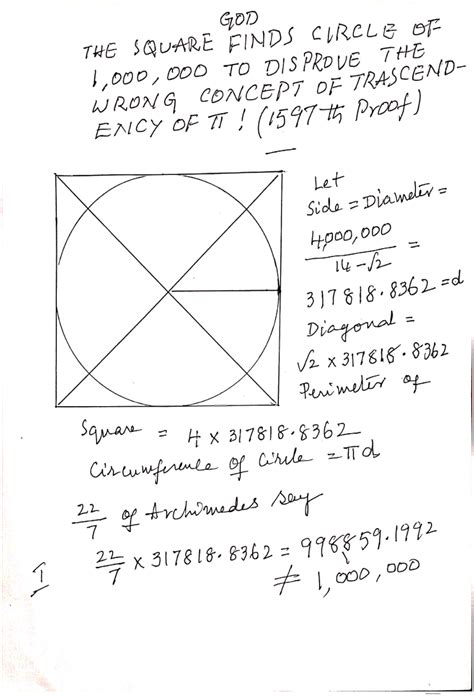 GOD
THE SQUARE FINDS CIRCLE OF
1,000,000 TO DISPROVE THE
WRONG CONCEPT OF TRASCEND-
ENCY OF π ! (1597 th Proof)
Let
Side = Diameter =
4,000,000
14-√2 =
317818.8362 = d
Diagonal =
√2 × 317818.8362
Perimeter of
Square = 4 × 317818.8362
Circumference of Circle = πd
22/7 of Archimedes say
I 22/7 × 317818.8362 = 998859.1992
≠ 1,000,000